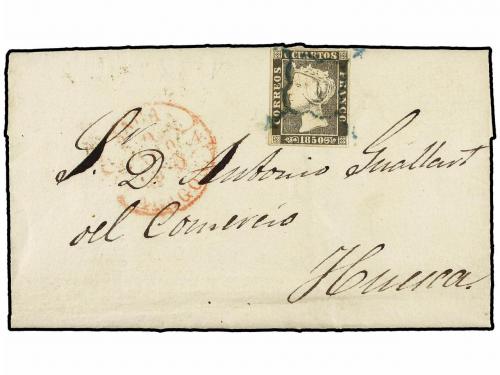 CUARTOS
CORREOS
FRANCO
1850
S. D. Antonio Guallart
del Comercio
Huesca.